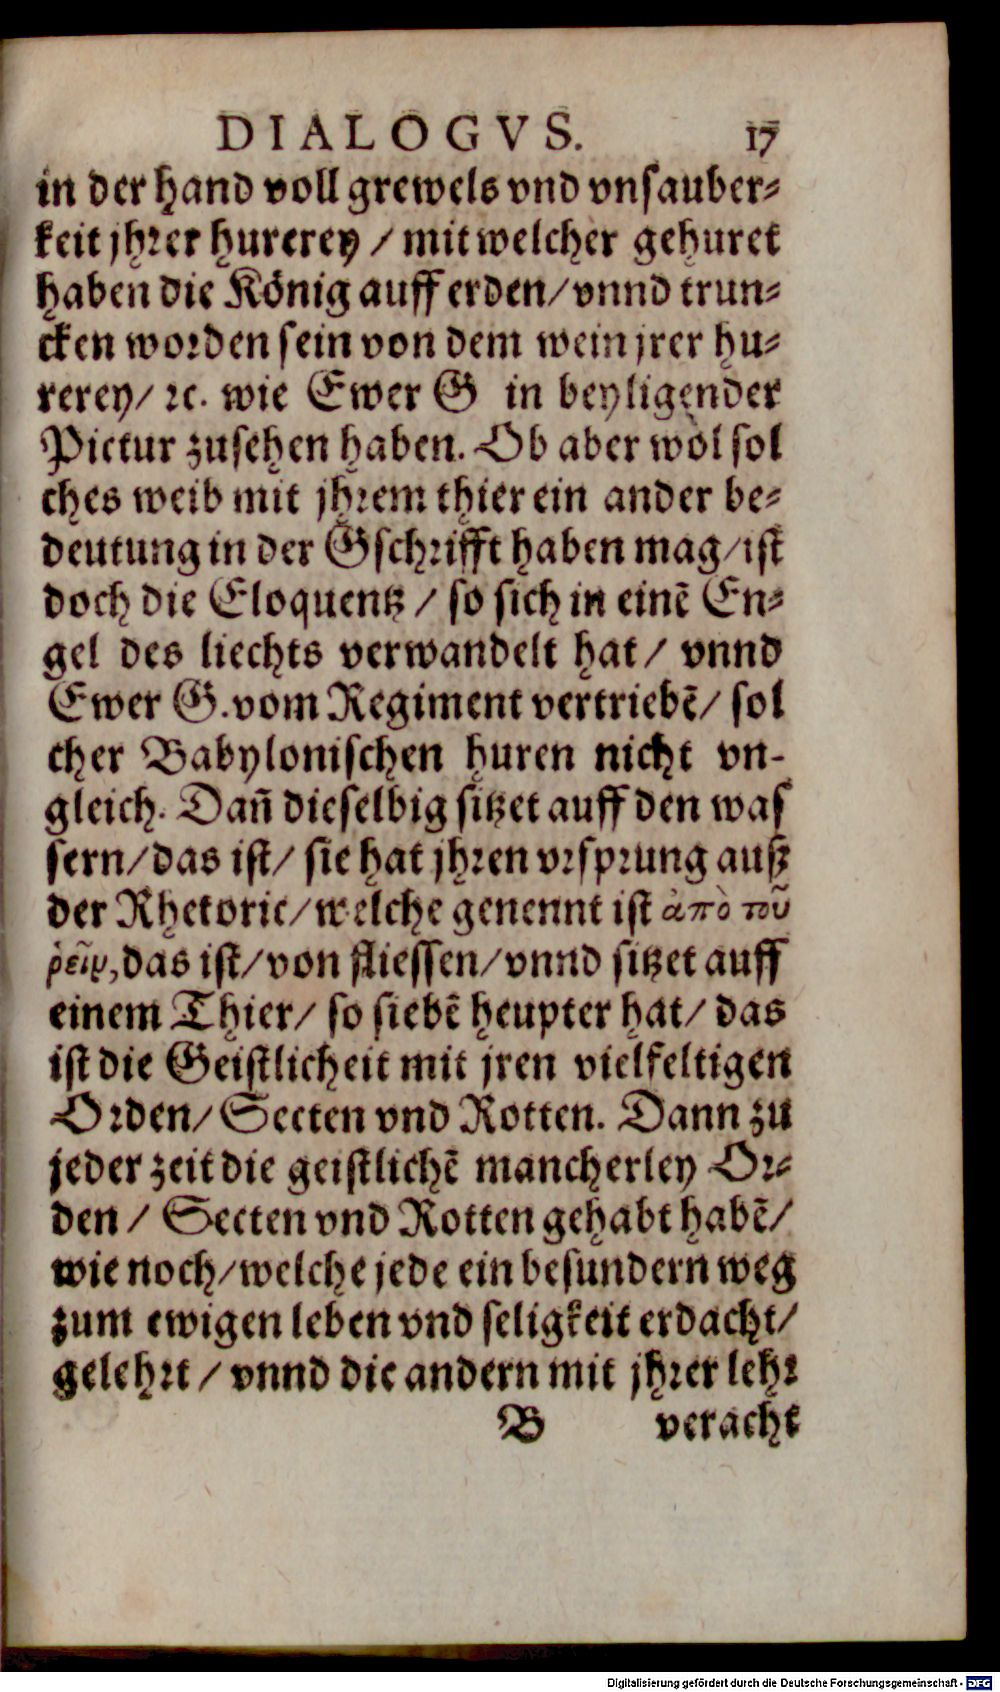 DIALOGVS. 17
in der hand voll grewels vnd vnsauber⸗
keit jhrer hurerey / mit welcher gehuret
haben die König auff erden/ vnnd trun⸗
cken worden sein von dem wein jrer hu⸗
rerey/ ꝛc. wie Ewer G in beyligender
Pictur zusehen haben. Ob aber wol sol
ches weib mit jhrem thier ein ander be⸗
deutung in der Gschrifft haben mag/ ist
doch die Eloquentz / so sich in einẽ En⸗
gel des liechts verwandelt hat/ vnnd
Ewer G. vom Regiment vertriebẽ/ sol
cher Babylonischen huren nicht vn-
gleich. Dañ dieselbig sitzet auff den was
sern/ das ist/ sie hat jhren vrsprung auß
der Rhetoric/ welche genennt ist ἀπὸ τοῦ
ῥεῖν, das ist/ von fliessen/ vnnd sitzet auff
einem Thier/ so siebẽ heupter hat/ das
ist die Geistlicheit mit jren vielfeltigen
Orden/ Secten vnd Rotten. Dann zu
jeder zeit die geistlichẽ mancherley Or⸗
den / Secten vnd Rotten gehabt habẽ/
wie noch/ welche jede ein besundern weg
zum ewigen leben vnd seligkeit erdacht/
gelehrt / vnnd die andern mit jhrer lehr
B veracht
Digitalisierung gefördert durch die Deutsche Forschungsgemeinschaft - DFG